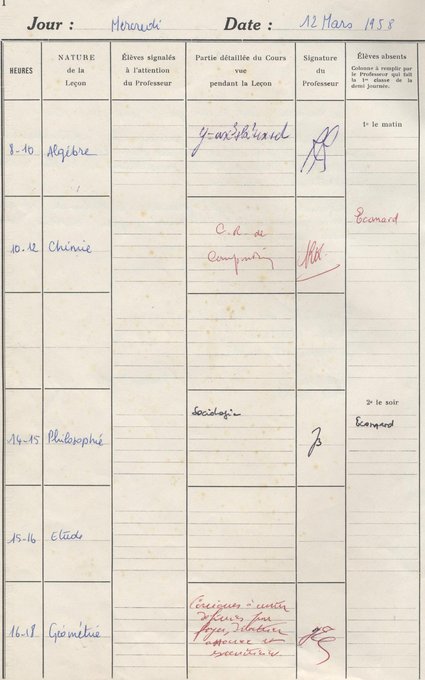 1
Jour : Mercredi Date : 12 Mars 1958
HEURES
NATURE
de la
Leçon
Élèves signalés
à l'attention
du Professeur
Partie détaillée du Cours
vue
pendant la Leçon
Signature
du
Professeur
Élèves absents
Colonne à remplir par
le Professeur qui fait
la 1re classe de la
demi journée.
1o le matin
8-10 Algèbre y=ax³+bx²+cx+d
Econard
10-12 Chimie C.R. de
Composition
2e le soir
14-15 Philosophie Sociologie Econard
15-16 Etude
16-18 Géométrie Coniques à centre
définies par
foyer, directrice
et
excentricité.